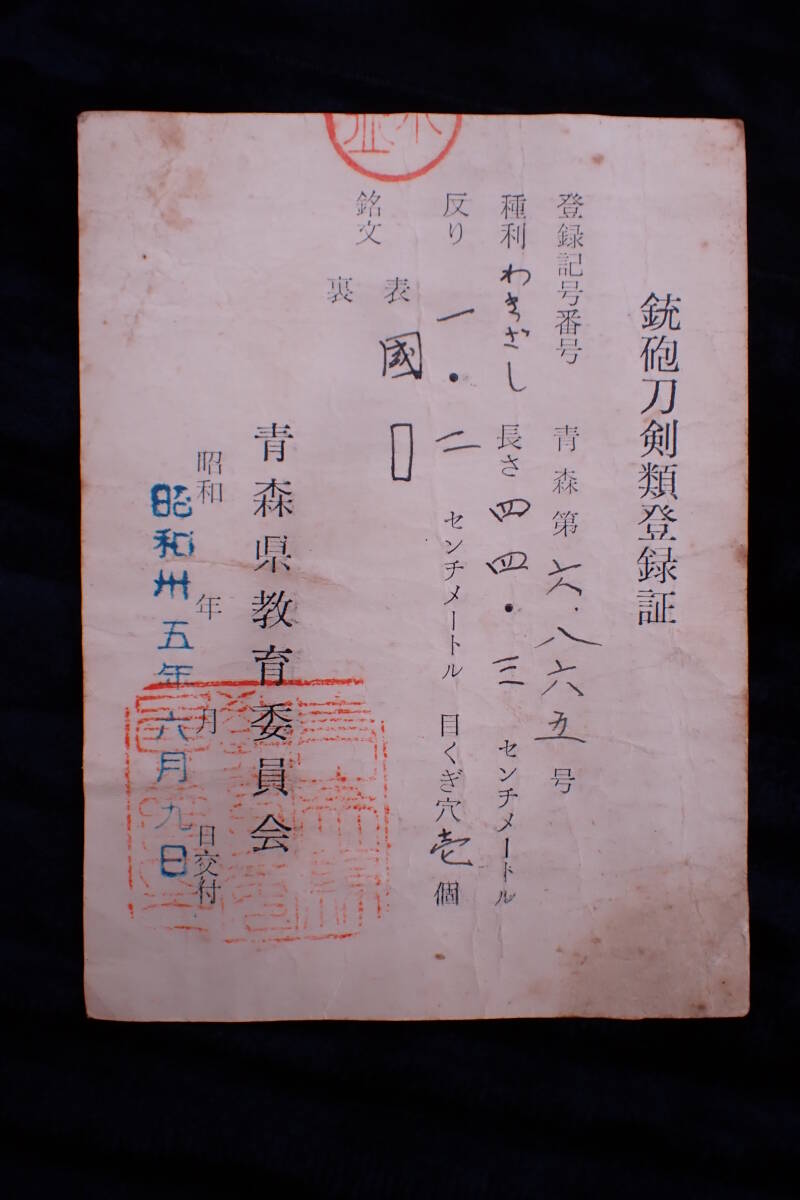 銃砲刀剣類登録証
登録記号番号 青森第六・八六五号
種別 わきざし 長さ 四四・三 センチメートル
反り 一・二 センチメートル 目くぎ穴 壱 個
銘文 表 國▯
裏
青森県教育委員会
昭和 年 月 日交付
昭和卅五年六月九日